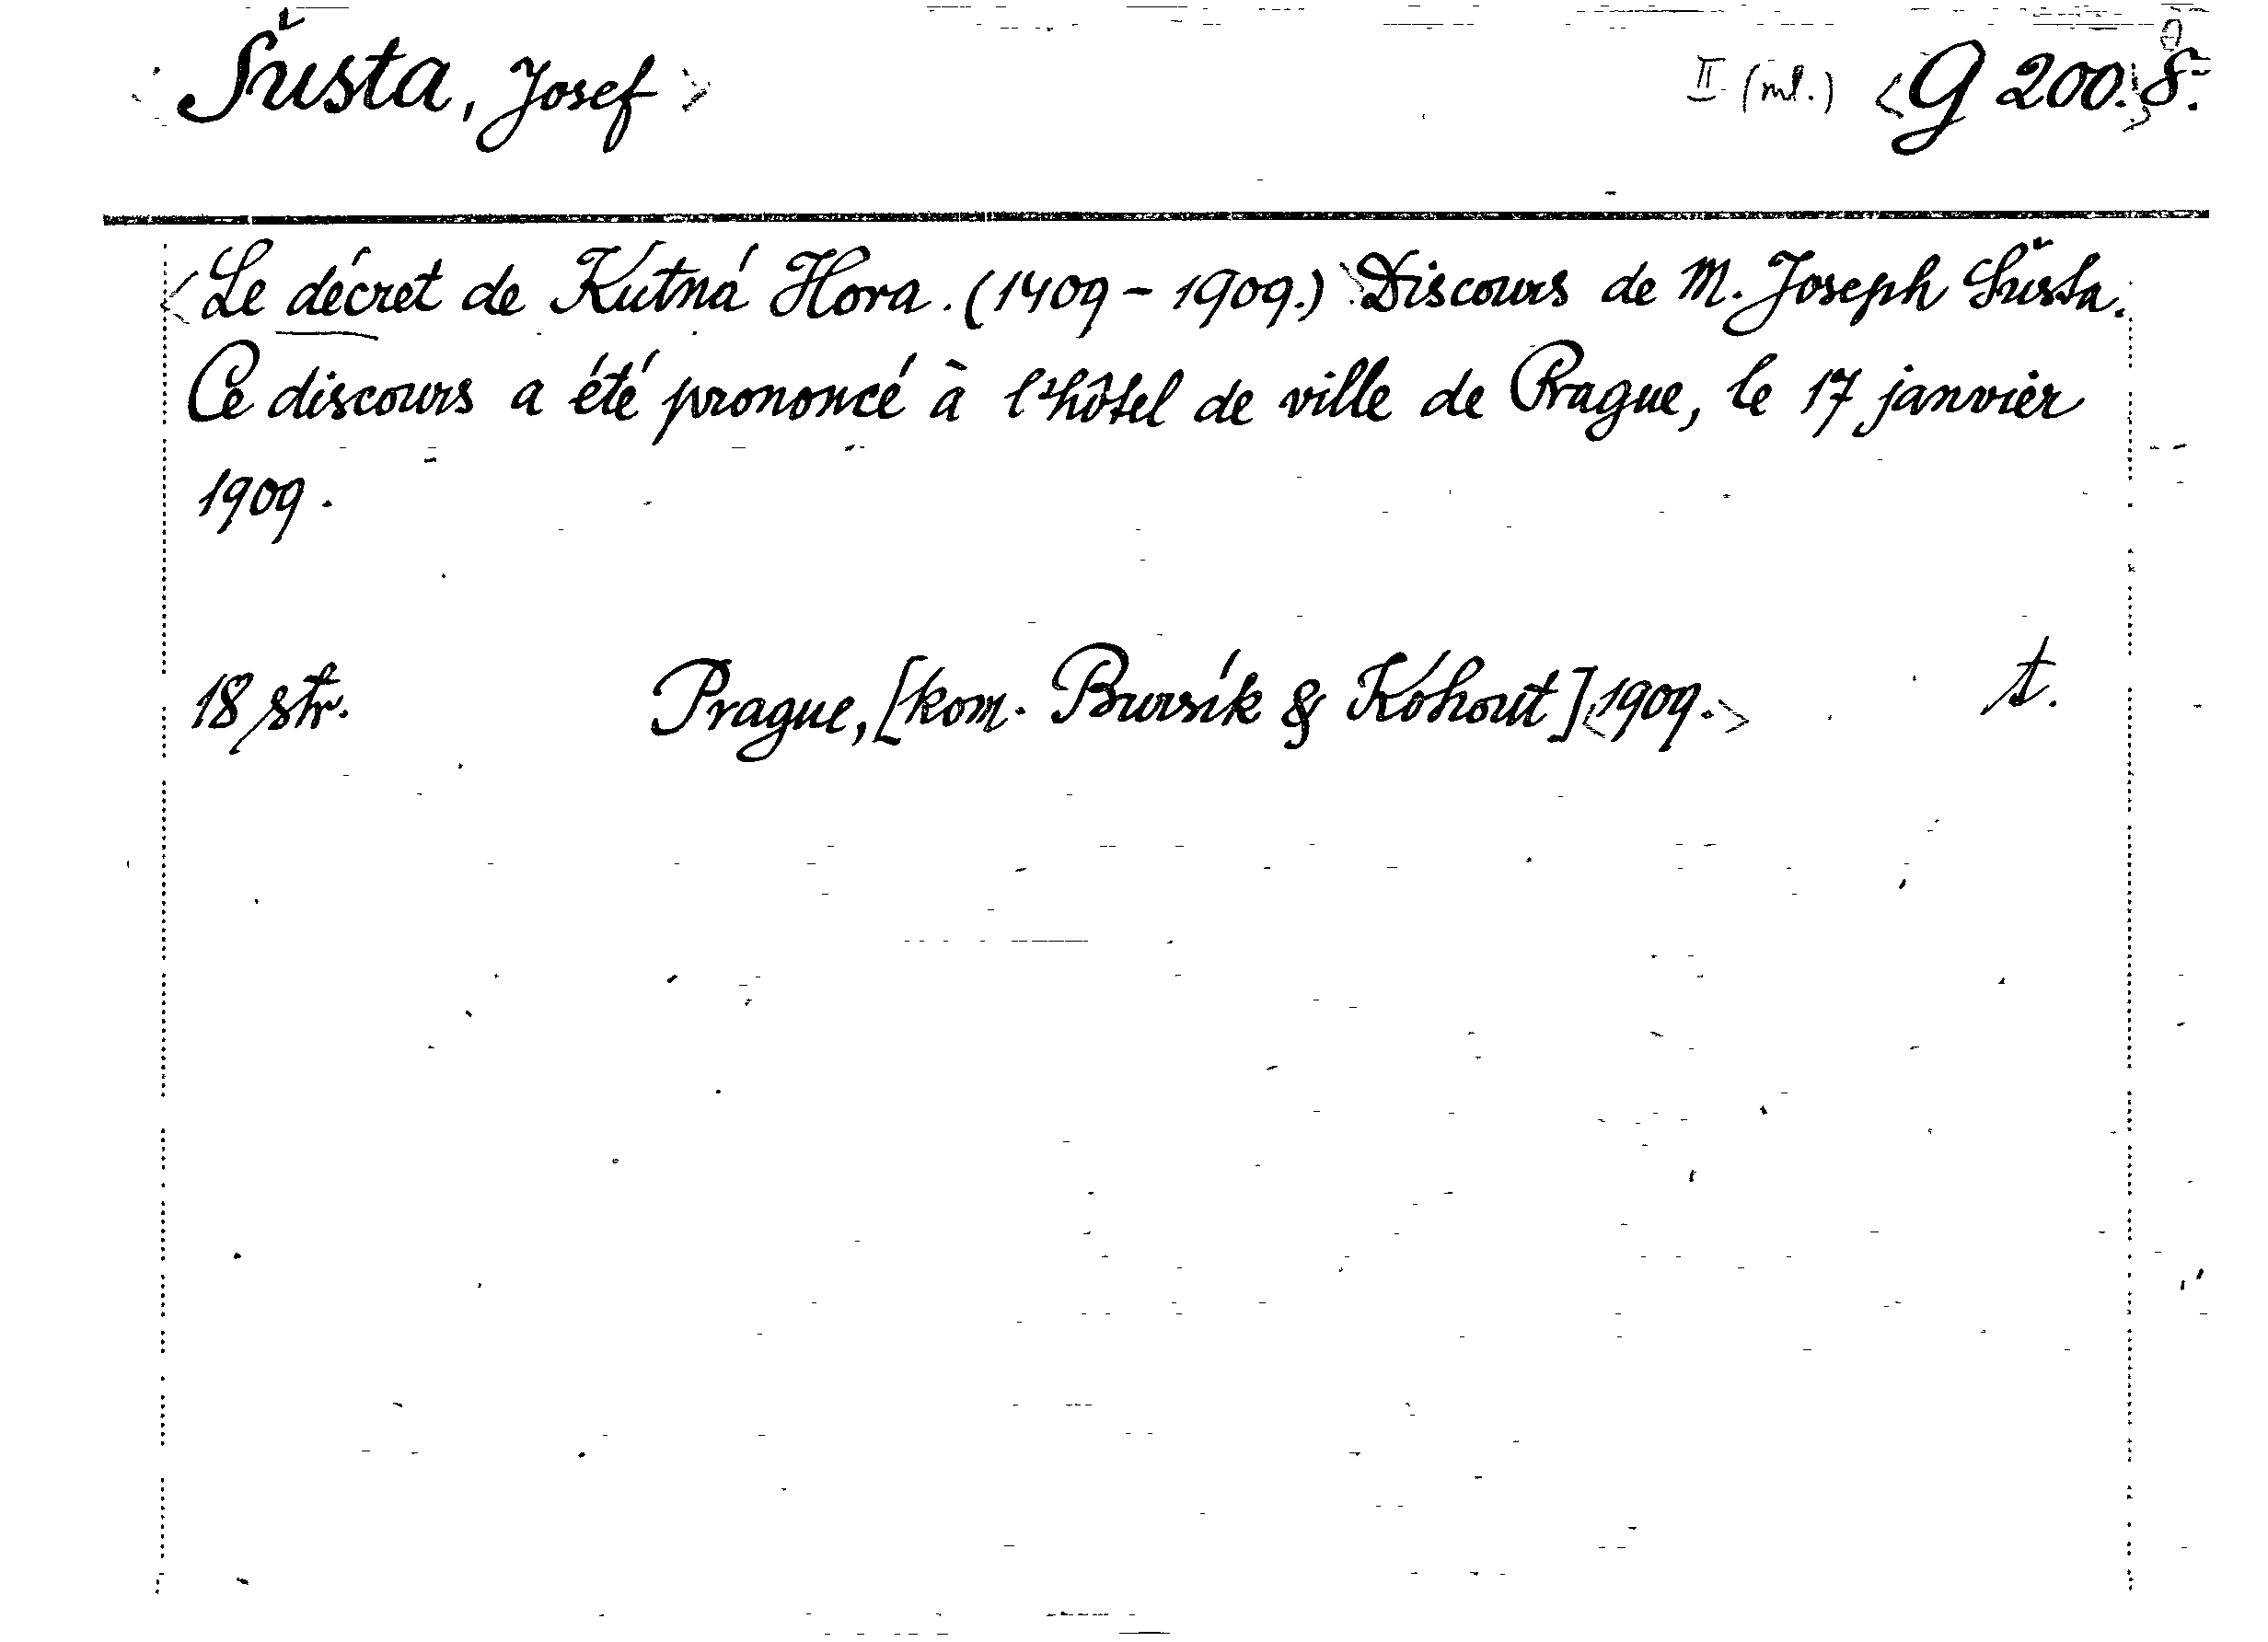 Šusta, Josef > II (ml.) <G 200.> 8.
<Le décret de Kutná Hora. (1409-1909.)> Discours de M. Joseph Šusta.
Ce discours a été prononcé à l'hôtel de ville de Prague, le 17 janvier
1909.
18 str. Prague, [kom. Bursík & Kohout] <1909.> t.